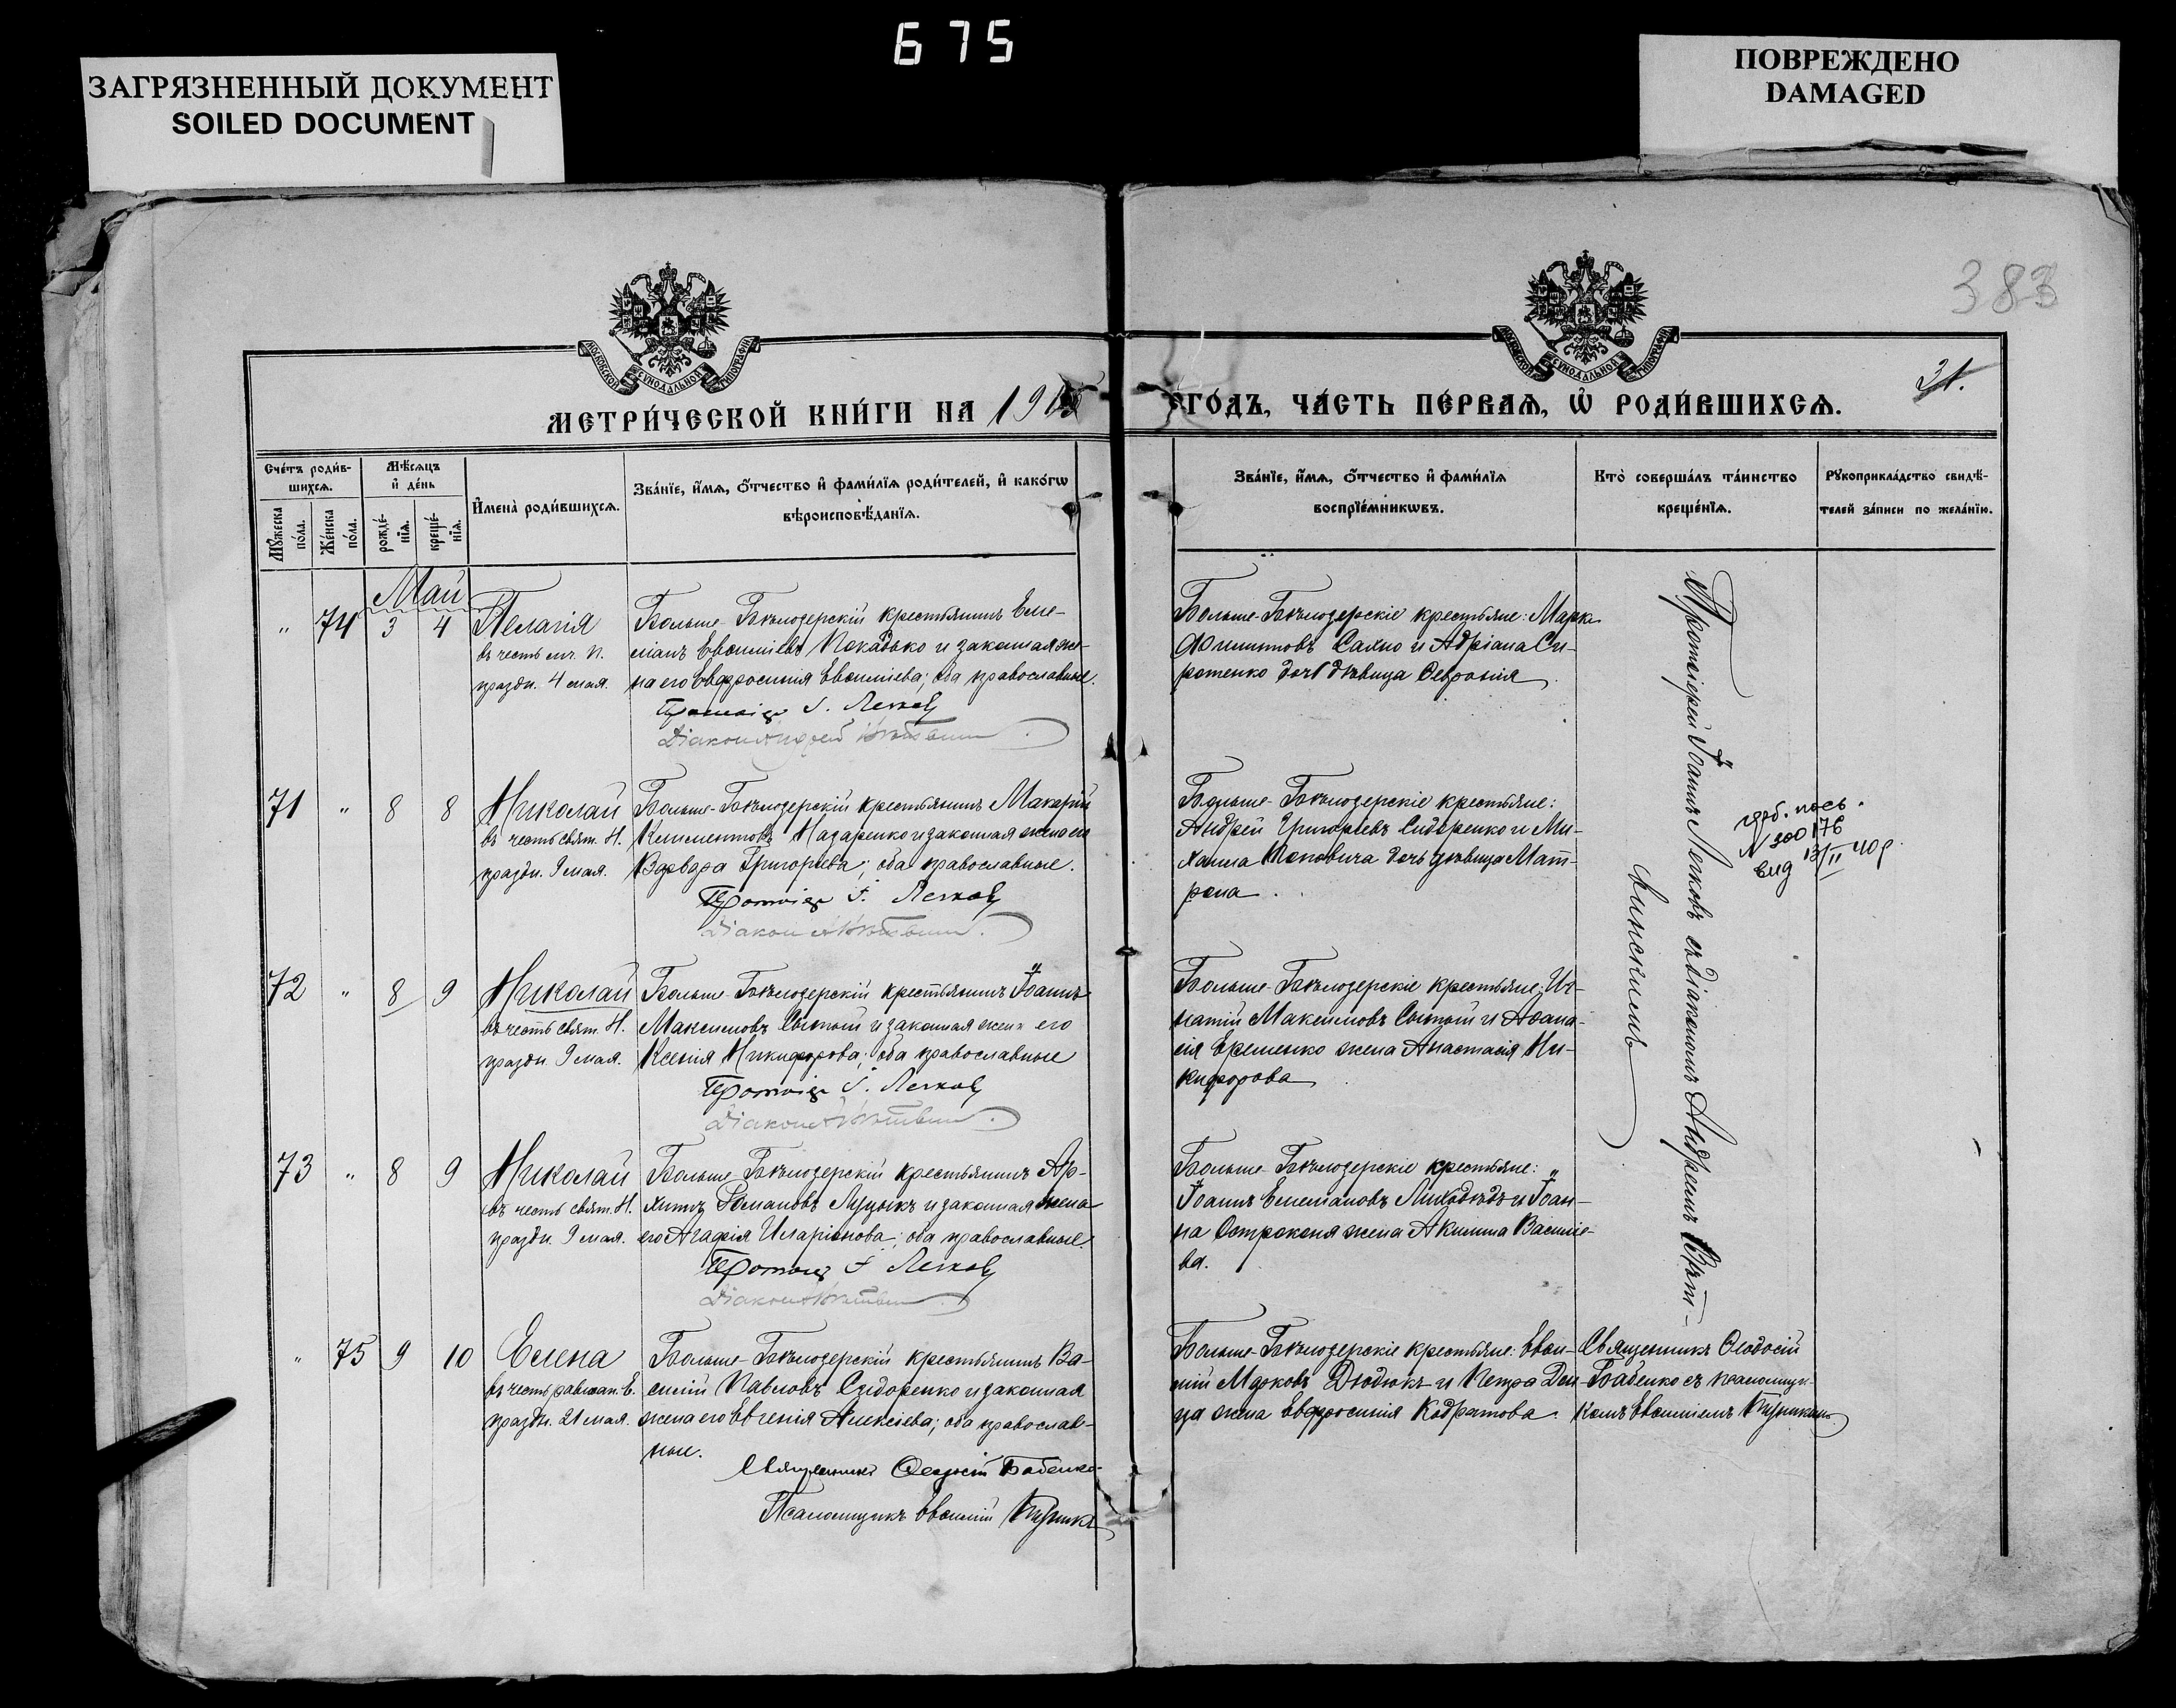 675
ЗАГРЯЗНЕННЫЙ ДОКУМЕНТ
SOILED DOCUMENT
ПОВРЕЖДЕНО
DAMAGED
383
31.
МОСКОВСКОЙ СѴНОДАЛЬНОЙ ТИПОГРАФІИ
МОСКОВСКОЙ СѴНОДАЛЬНОЙ ТИПОГРАФІИ
МЕТРИ́ЧЕСКОЙ КНИ́ГИ НА 191
ГО́ДЪ, ЧА́СТЬ ПЕ́РВАѦ, Ѡ҆ РОДИ́ВШИХСѦ.
Сче́тъ роди́в-
шихсѧ.
Мѹ́жеска по́ла.
Же́нска по́ла.
Мѣ́сѧцъ
и҆ де́нь
рожде́-
нїѧ.
креще́-
нїѧ.
И҆мена̀ роди́вшихсѧ.
Зва́нїе, и҆́мѧ, ѻ҆́тчество и҆ фами́лїѧ роди́телей, и҆ како́гѡ
вѣроисповѣ́данїѧ.
Зва́нїе, и҆́мѧ, ѻ҆́тчество и҆ фами́лїѧ
воспрїе́мникѡвъ.
Кто̀ соверша́лъ та́инство
креще́нїѧ.
Рѹкоприкла́дство свидѣ́-
телей за́писи по жела́нїю.
Май
" 74 3 4 Пелагія
въ честь мч. П.
праздн. 4 мая.
Больше-Бѣлозерскій крестьянинъ Еме-
ліанъ Евѳиміевъ Покадько и законная же-
на его Евфросинія Евѳиміева; оба православные.
Протоіер І. Легковъ
Діаконъ Андрей
Больше-Бѣлозерскіе крестьяне: Маркъ
Филипповъ Сахно и Адріана Си-
ротенко дочь дѣвица Февронія
71 " 8 8 Николай
въ честь свят. Н.
праздн. 9 мая.
Больше-Бѣлозерскій крестьянинъ Макарій
Климентовъ Назаренко и законная жена его
Варвара Григорьева; оба православные.
Протоіер І. Легковъ
Діаконъ
Больше-Бѣлозерскіе крестьяне:
Андрей Григорьевъ Сидоренко и Ми-
хаила Поповича дочь дѣвица Мат-
рона
72 " 8 9 Николай
въ честь свят. Н.
праздн. 9 мая.
Больше-Бѣлозерскій крестьянинъ Іоаннъ
Максимовъ Сытый и законная жена его
Ксенія Никифорова; оба православные
Протоіер І. Легковъ
Діаконъ
Больше-Бѣлозерскіе крестьяне: Иг-
натій Максимовъ Сытый и Аѳана-
сія Еременко жена Анастасія Ни-
кифорова
73 " 8 9 Николай
въ честь свят. Н.
праздн. 9 мая.
Больше-Бѣлозерскій крестьянинъ Ар-
хипъ Романовъ Музыкъ и законная жена
его Агафія Иларіонова; оба православные.
Протоіер І. Легковъ
Діаконъ
Больше-Бѣлозерскіе крестьяне:
Іоаннъ Емеліановъ Лиходѣдъ и Іоан-
на жена Акилина Василіе-
ва.
Протоіерей Іоаннъ Легковъ съ діакономъ Андреемъ
гроб. пось.
N 300176
выд 13/II 40 р
" 75 9 10 Елена
въ честь равноап. Е.
праздн. 21 мая.
Больше-Бѣлозерскій крестьянинъ Ва-
силій Павловъ Сидоренко и законная
жена его Евгенія Алексіева; оба православ-
ные.
Священникъ Ѳеодосій Бабенко
Псаломщикъ Евѳимій
Больше-Бѣлозерскіе крестьяне: Евѳи-
мій Марковъ Дюдюкъ и Петра Ден-
ца жена Евфросинія Кодратова.
Священникъ Ѳеодосій
Бабенко съ псаломщи-
комъ Евѳиміемъ